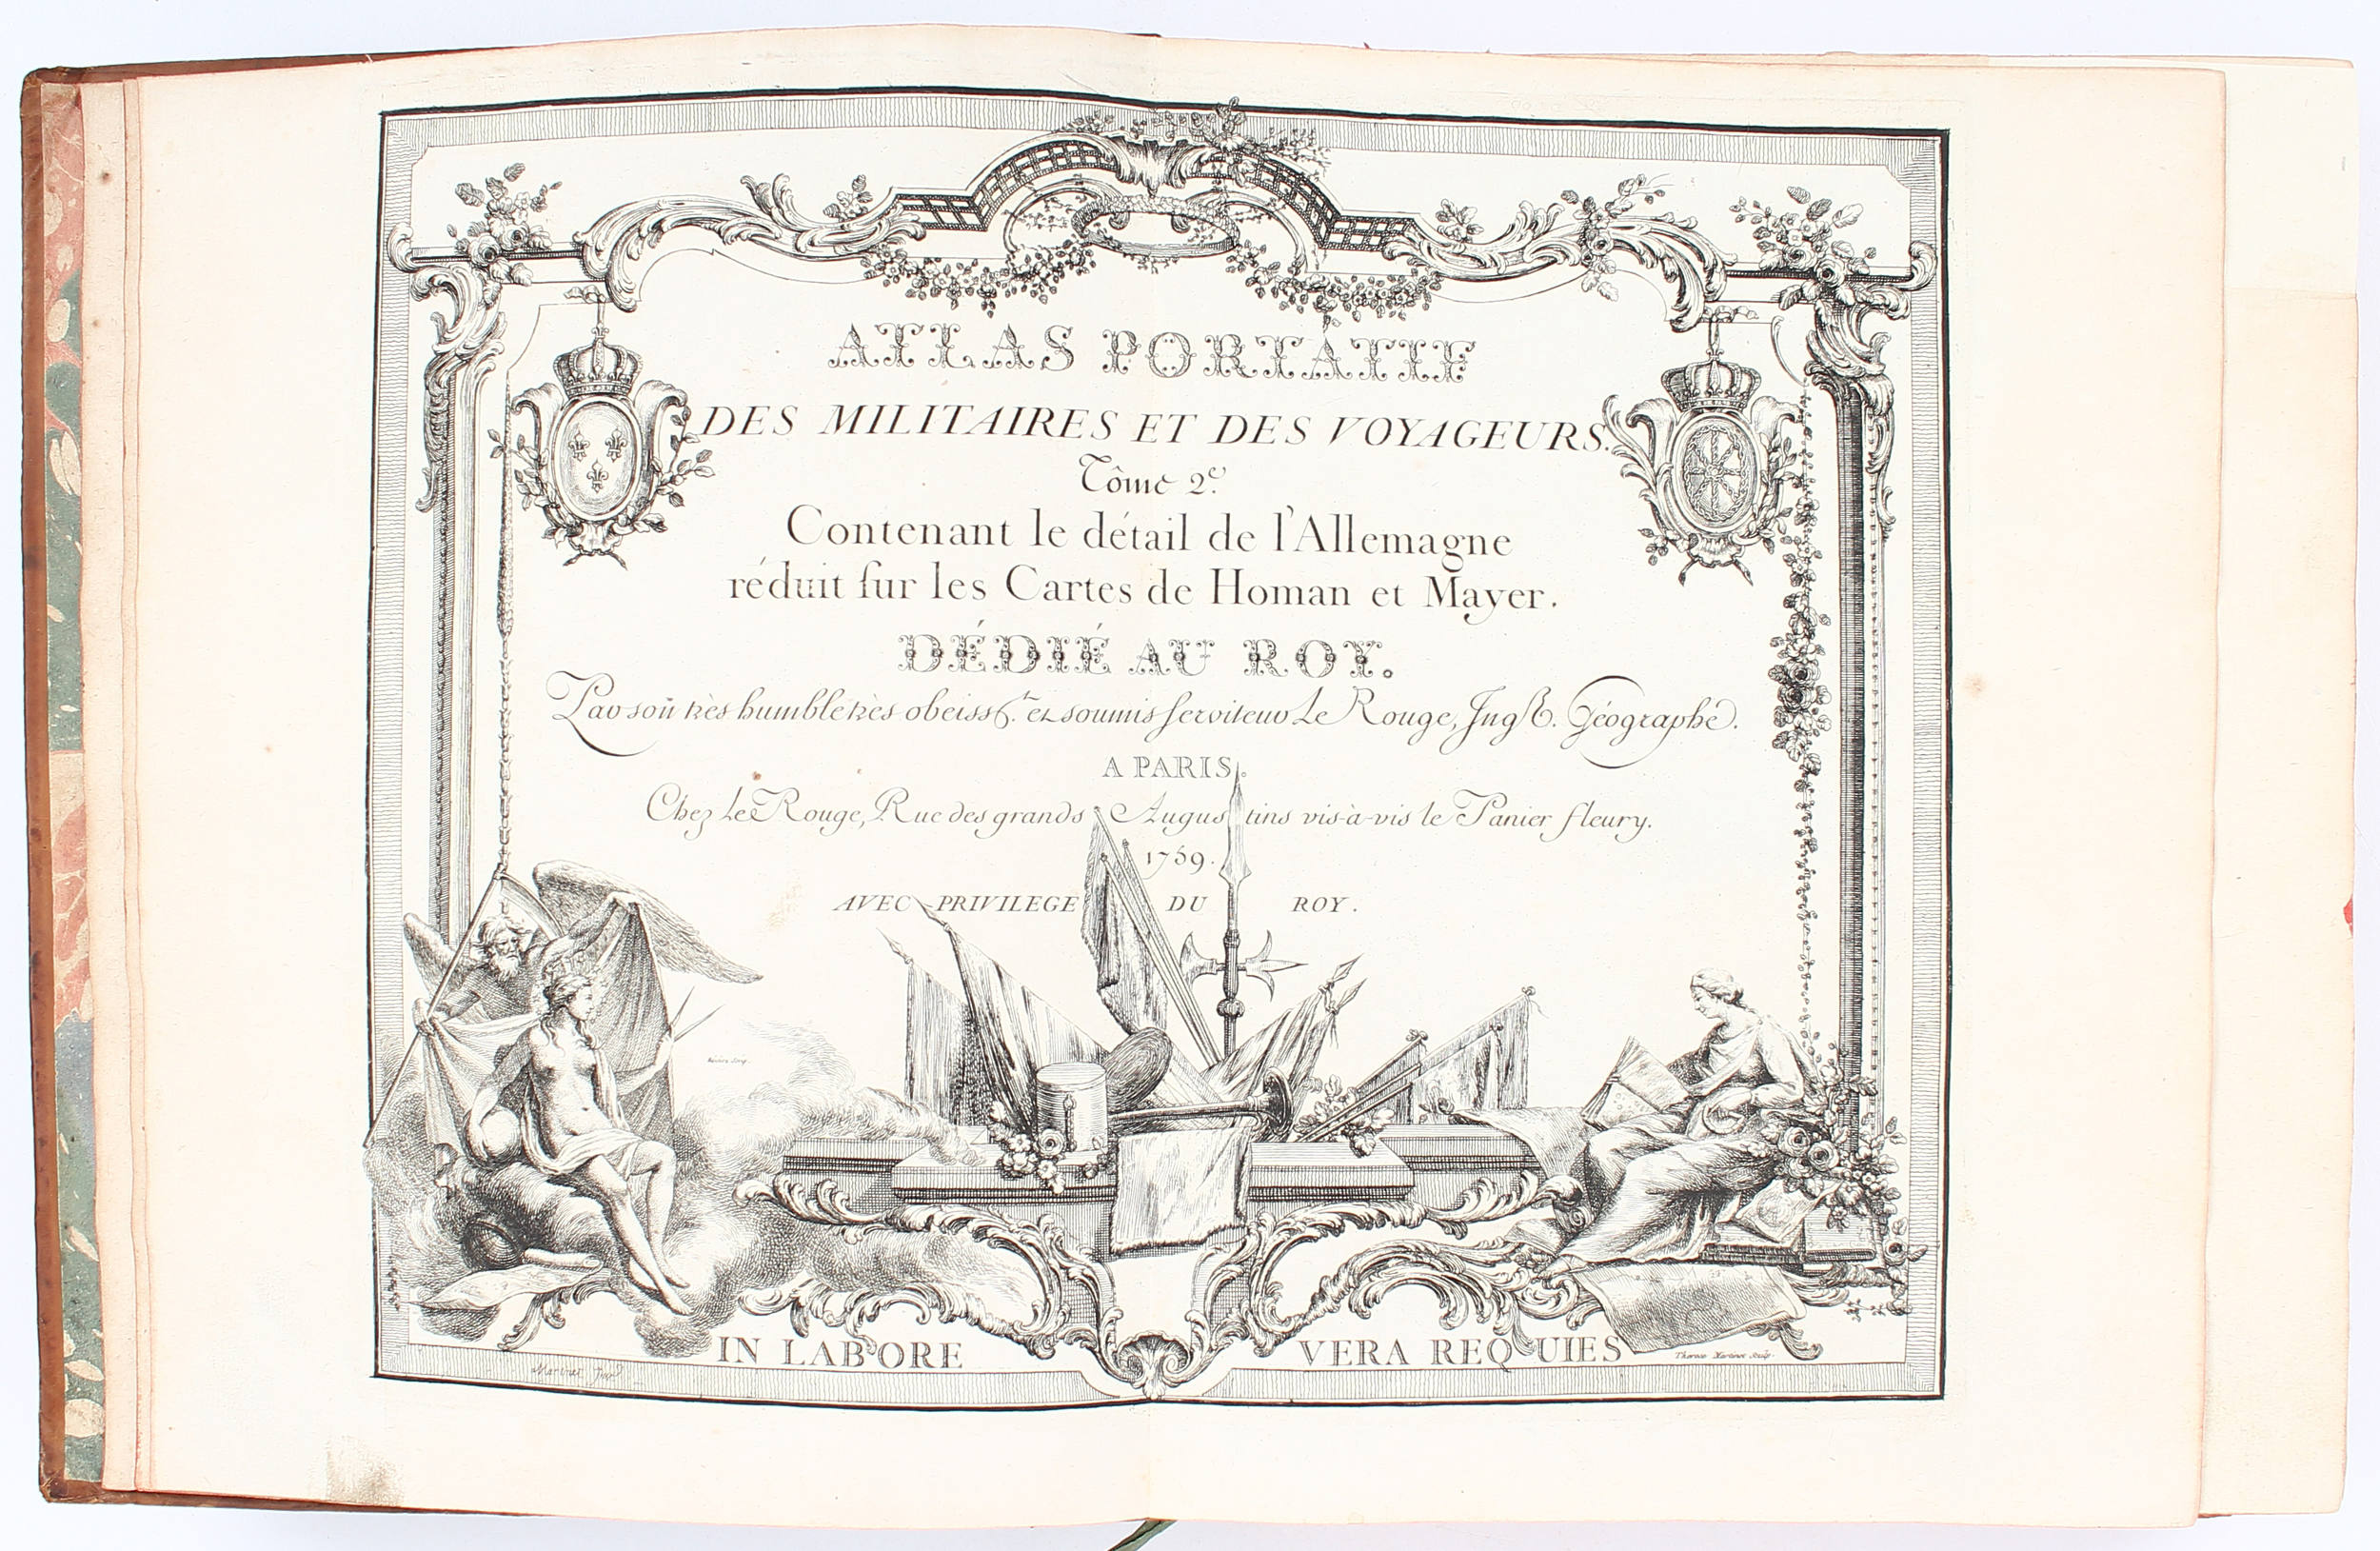 ATLAS PORTATIF
DES MILITAIRES ET DES VOYAGEURS.
Tôme 2.e
Contenant le détail de l'Allemagne
réduit sur les Cartes de Homan et Mayer.
DÉDIÉ AU ROY.
Par son très humble très obeiss.t et soumis serviteur Le Rouge, Ing.r Géographe.
A PARIS.
Chez Le Rouge, Rue des grands Augustins vis-à-vis le Panier fleury.
1759.
AVEC PRIVILEGE DU ROY.
IN LABORE VERA REQUIES
Sculp.